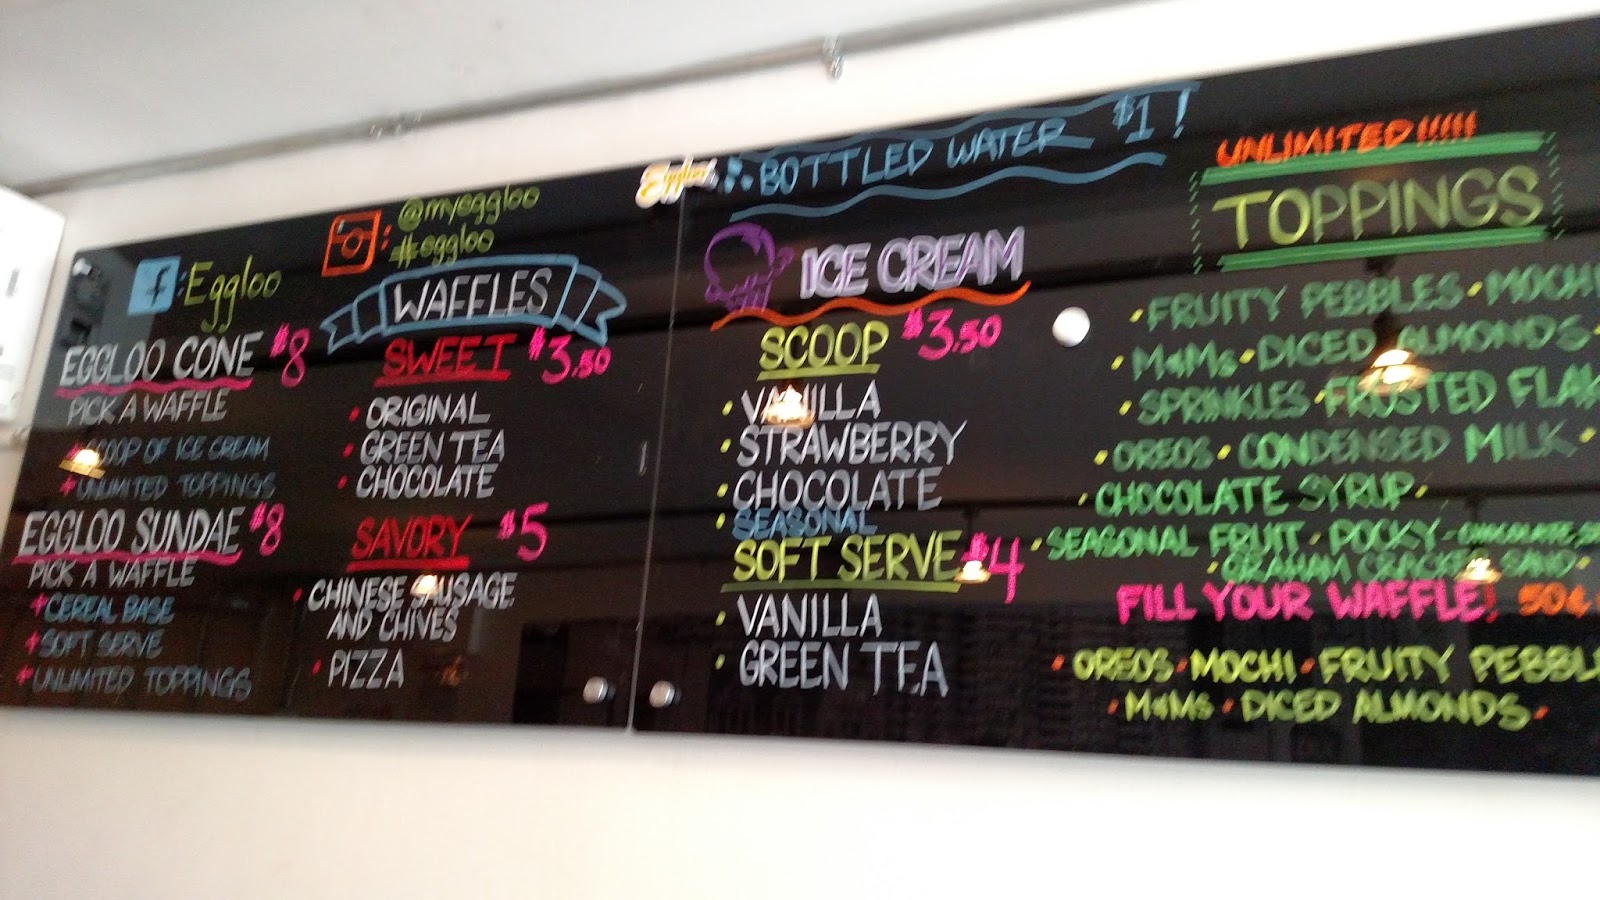 f : Eggloo
: @myeggloo
#eggloo
EGGLOO CONE $8
PICK A WAFFLE
+ SCOOP OF ICE CREAM
+ UNLIMITED TOPPINGS
EGGLOO SUNDAE $8
PICK A WAFFLE
+ CEREAL BASE
+ SOFT SERVE
+ UNLIMITED TOPPINGS
WAFFLES
SWEET $3.50
• ORIGINAL
• GREEN TEA
• CHOCOLATE
SAVORY $5
• CHINESE SAUSAGE
AND CHIVES
• PIZZA
Eggloo
BOTTLED WATER $1!
ICE CREAM
SCOOP $3.50
• VANILLA
• STRAWBERRY
• CHOCOLATE
• SEASONAL
SOFT SERVE $4
• VANILLA
• GREEN TEA
UNLIMITED!!!!!
TOPPINGS
• FRUITY PEBBLES • MOCHI
• M&Ms • DICED ALMONDS •
• SPRINKLES • FROSTED FLA
• OREOS • CONDENSED MILK •
• CHOCOLATE SYRUP •
• SEASONAL FRUIT • POCKY • CHOCOLATE
• GRAHAM CRACKER SAND •
FILL YOUR WAFFLE! 50¢
• OREOS • MOCHI • FRUITY PEBBL
• M&Ms • DICED ALMONDS •